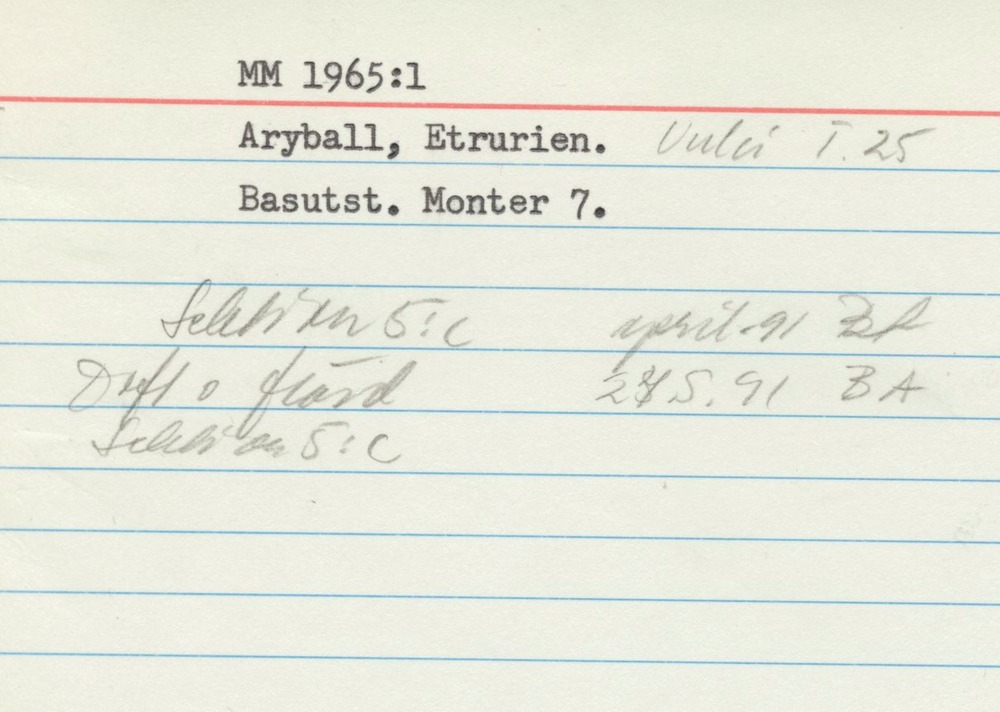 MM 1965:1
Aryball, Etrurien. Vulci T. 25
Basutst. Monter 7.
Sektion 5:C april-91 BA
Doft o flärd 5.91 BA
Sektion 5:C